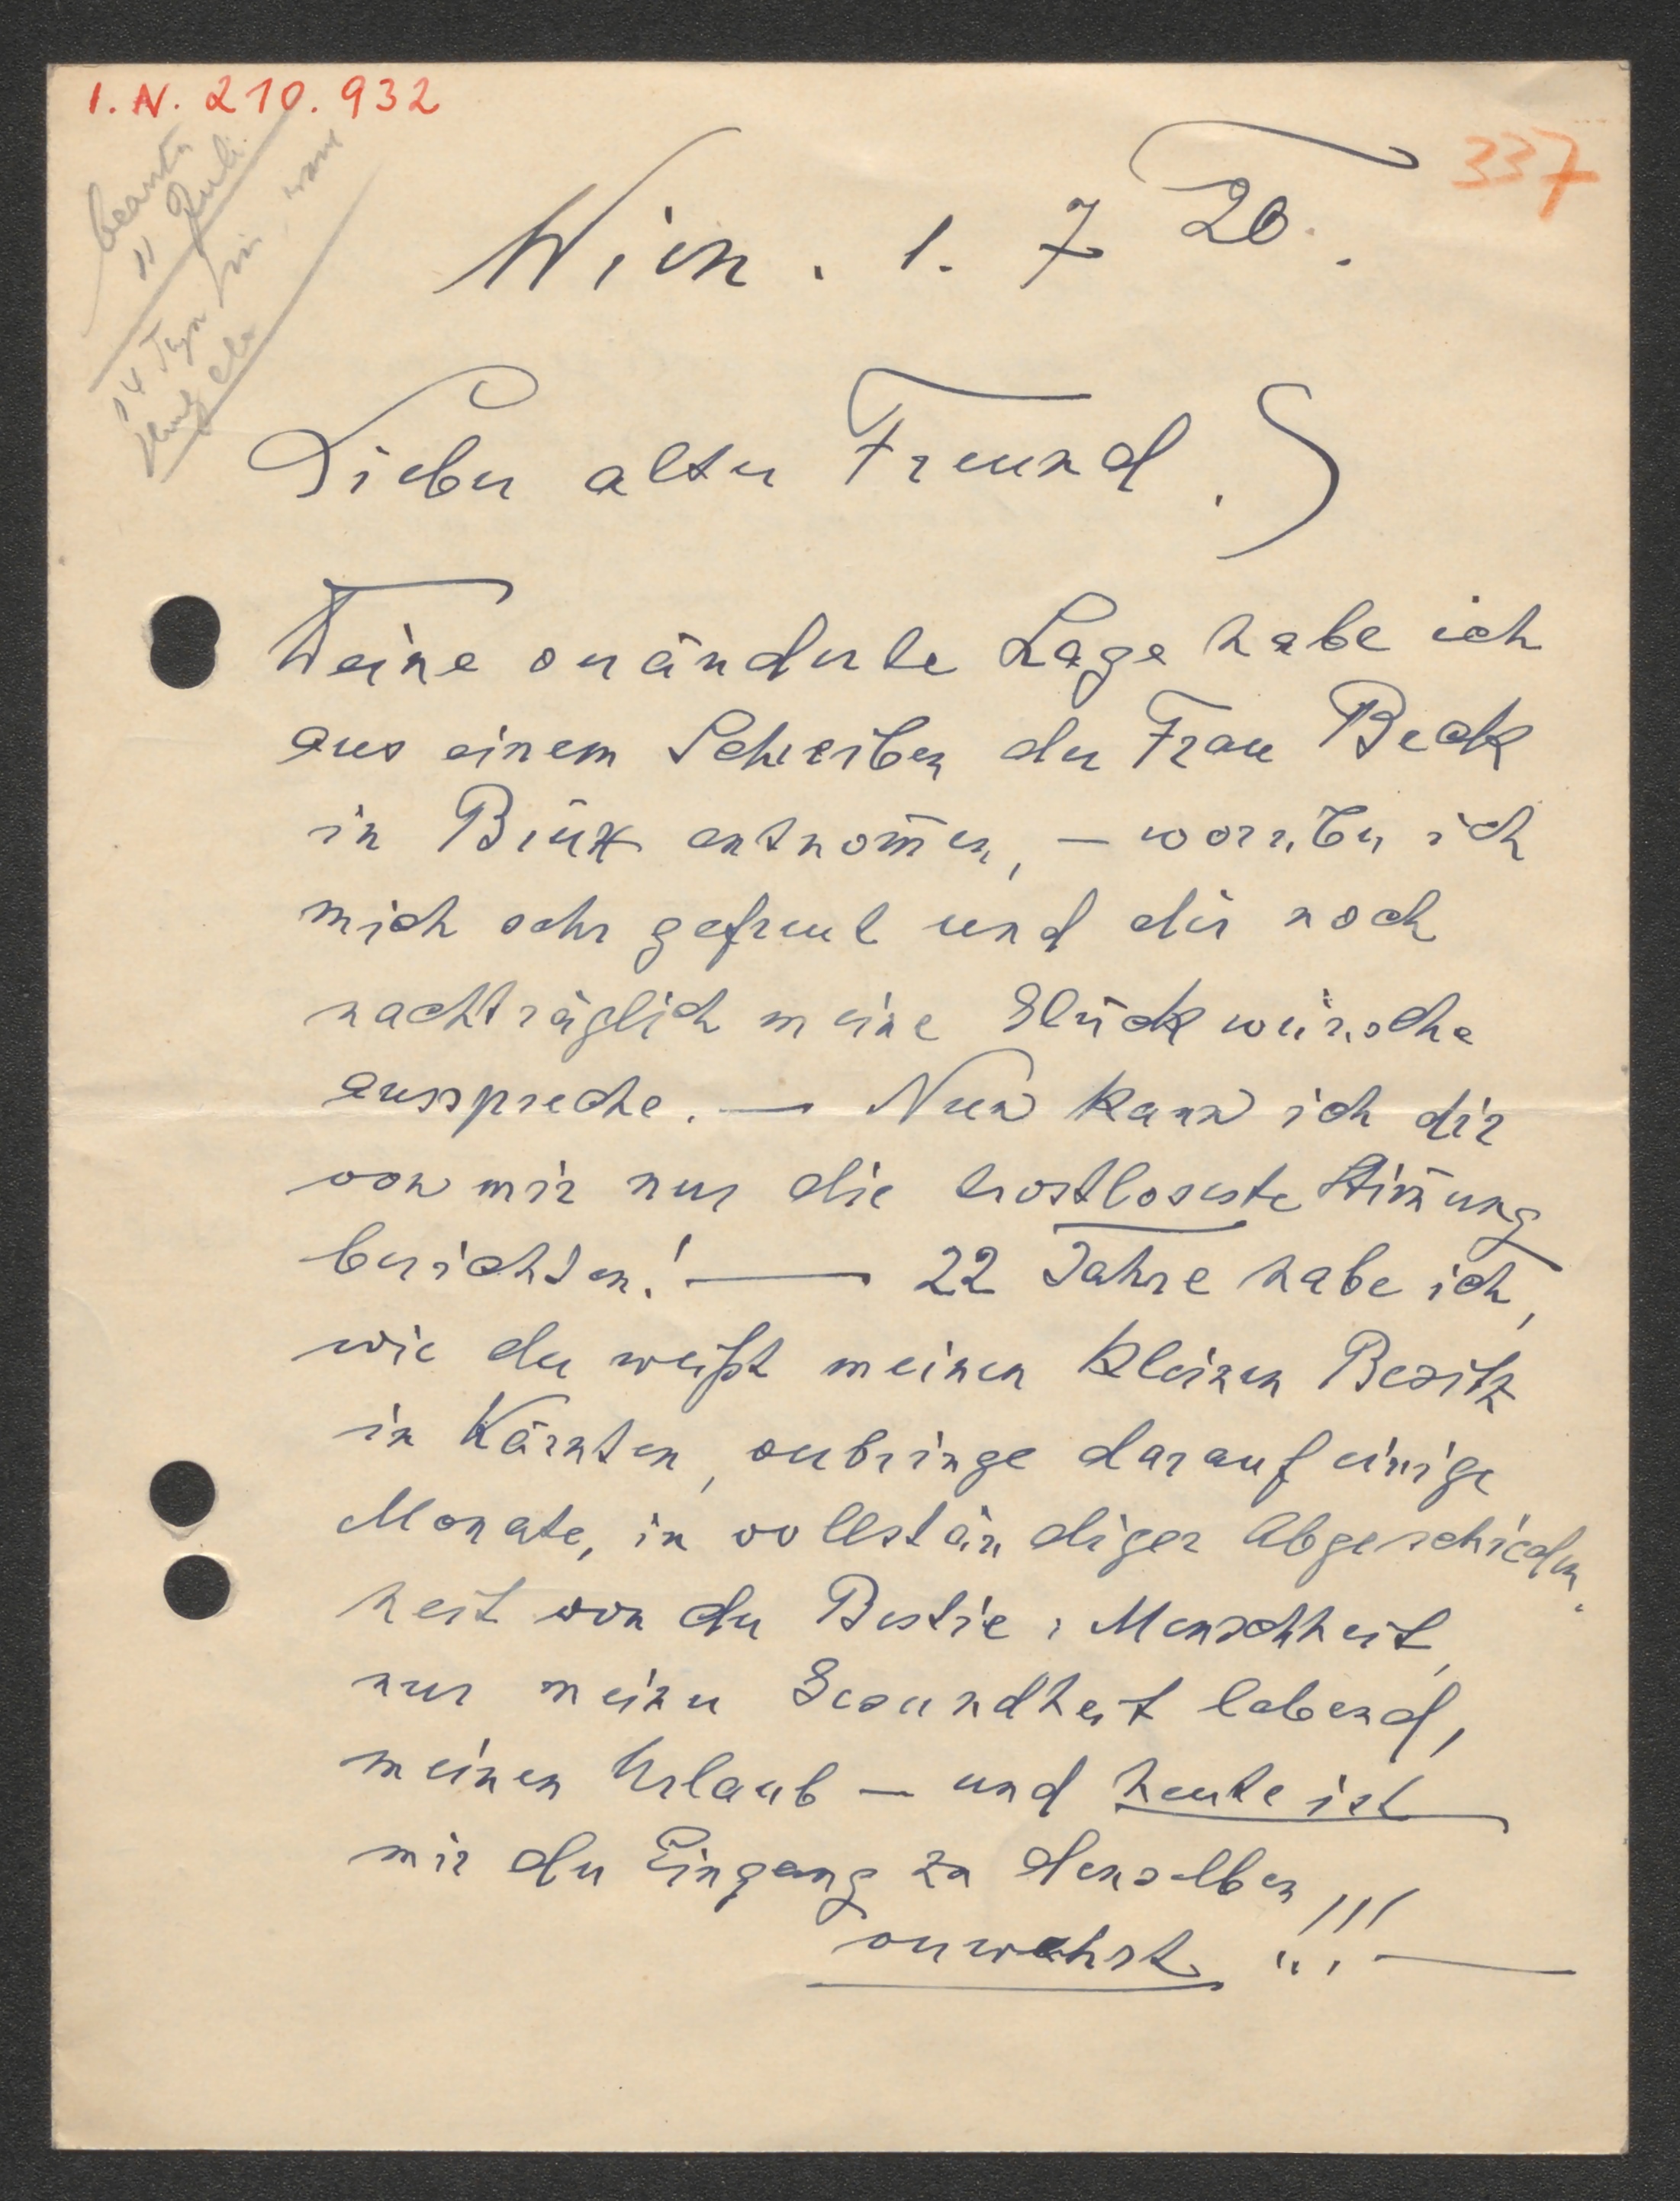 I. N. 210.932
337
beantw
11 Juli
14 Tgn
Wien. 1. 7 20.
Lieber alter Freund.
Deine veränderte Lage habe ich
aus einem Schreiben der Frau Beck
in Brüx entnom̄en, – worüber ich
mich sehr gefreut und dir noch
nachträglich meine Glückwünsche
ausspreche. — Nun kann ich dir
von mir nur die trostloseste Stim̄ung
berichten! — 22 Jahre habe ich,
wie du weißt meinen kleinen Besitz
in Kärnten, verbringe darauf einige
Monate, in vollständiger Abgeschieden-
heit von der Bestie: Menschheit,
nur meiner Gesundheit lebend,
meinen Urlaub – und heute ist
mir der Eingang zu denselben
verwehrt!!! —